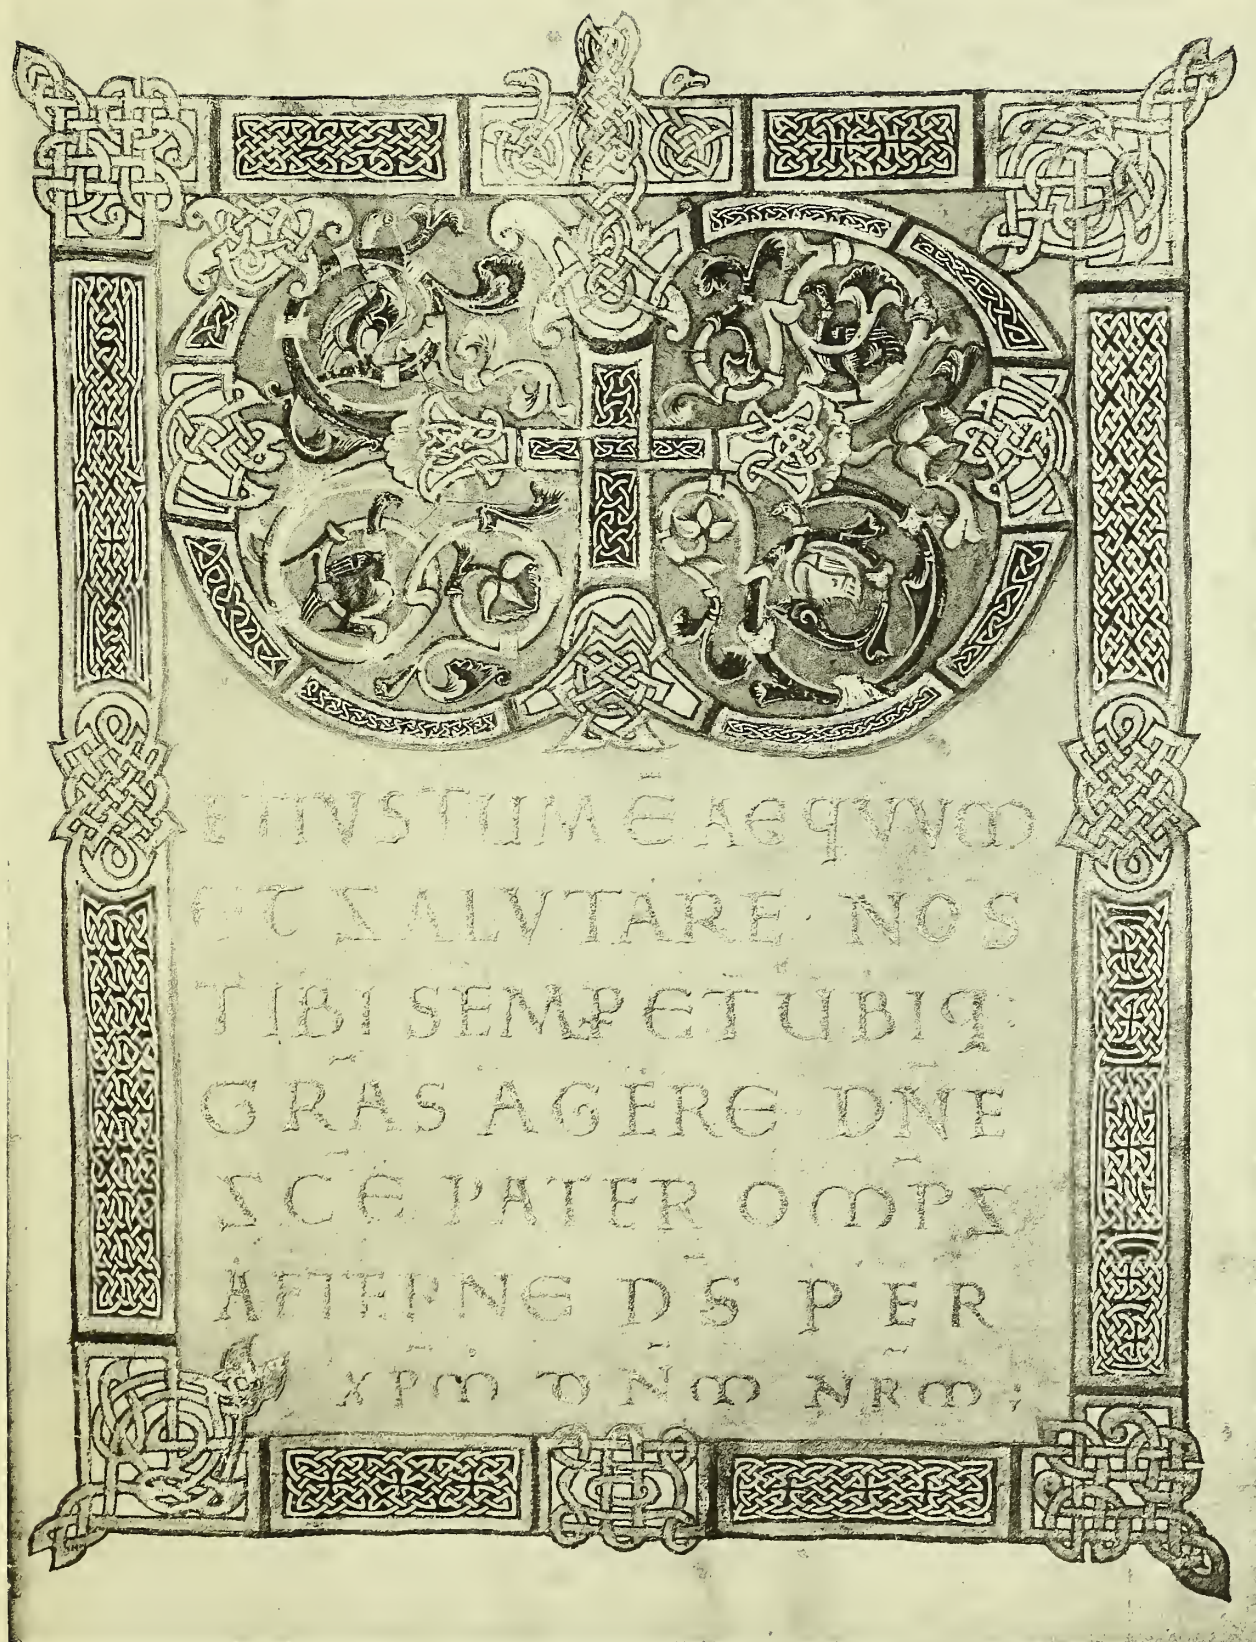 ET IVSTUM Ē AEQVVM
ET SALVTARE · NOS
TIBI SEMP̄ ET UBIQ:
GRĀS AGERE DN̄E
SC̄E PATER OMP̄S
AETERNE DS̄ PER
XP̄M DN̄M NR̄M;